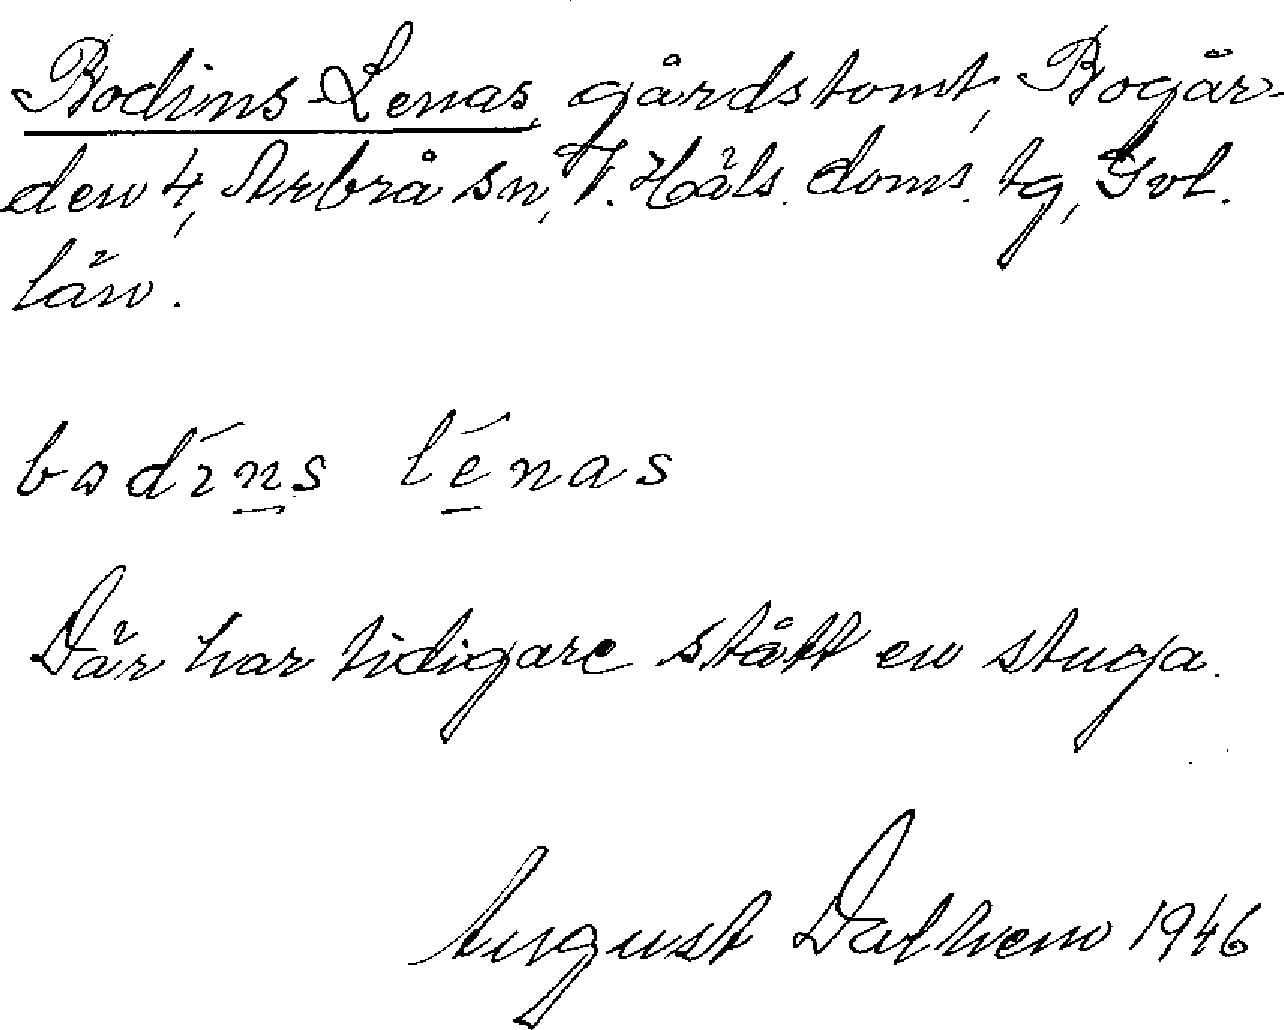 Bodins-Lenas, gårdstomt, Bogår-
den 4, Arbrå sn, V. Häls. doms. tg, Gvl.
län.
bodíns lénas
Där har tidigare stått en stuga.
August Dalhem 1946